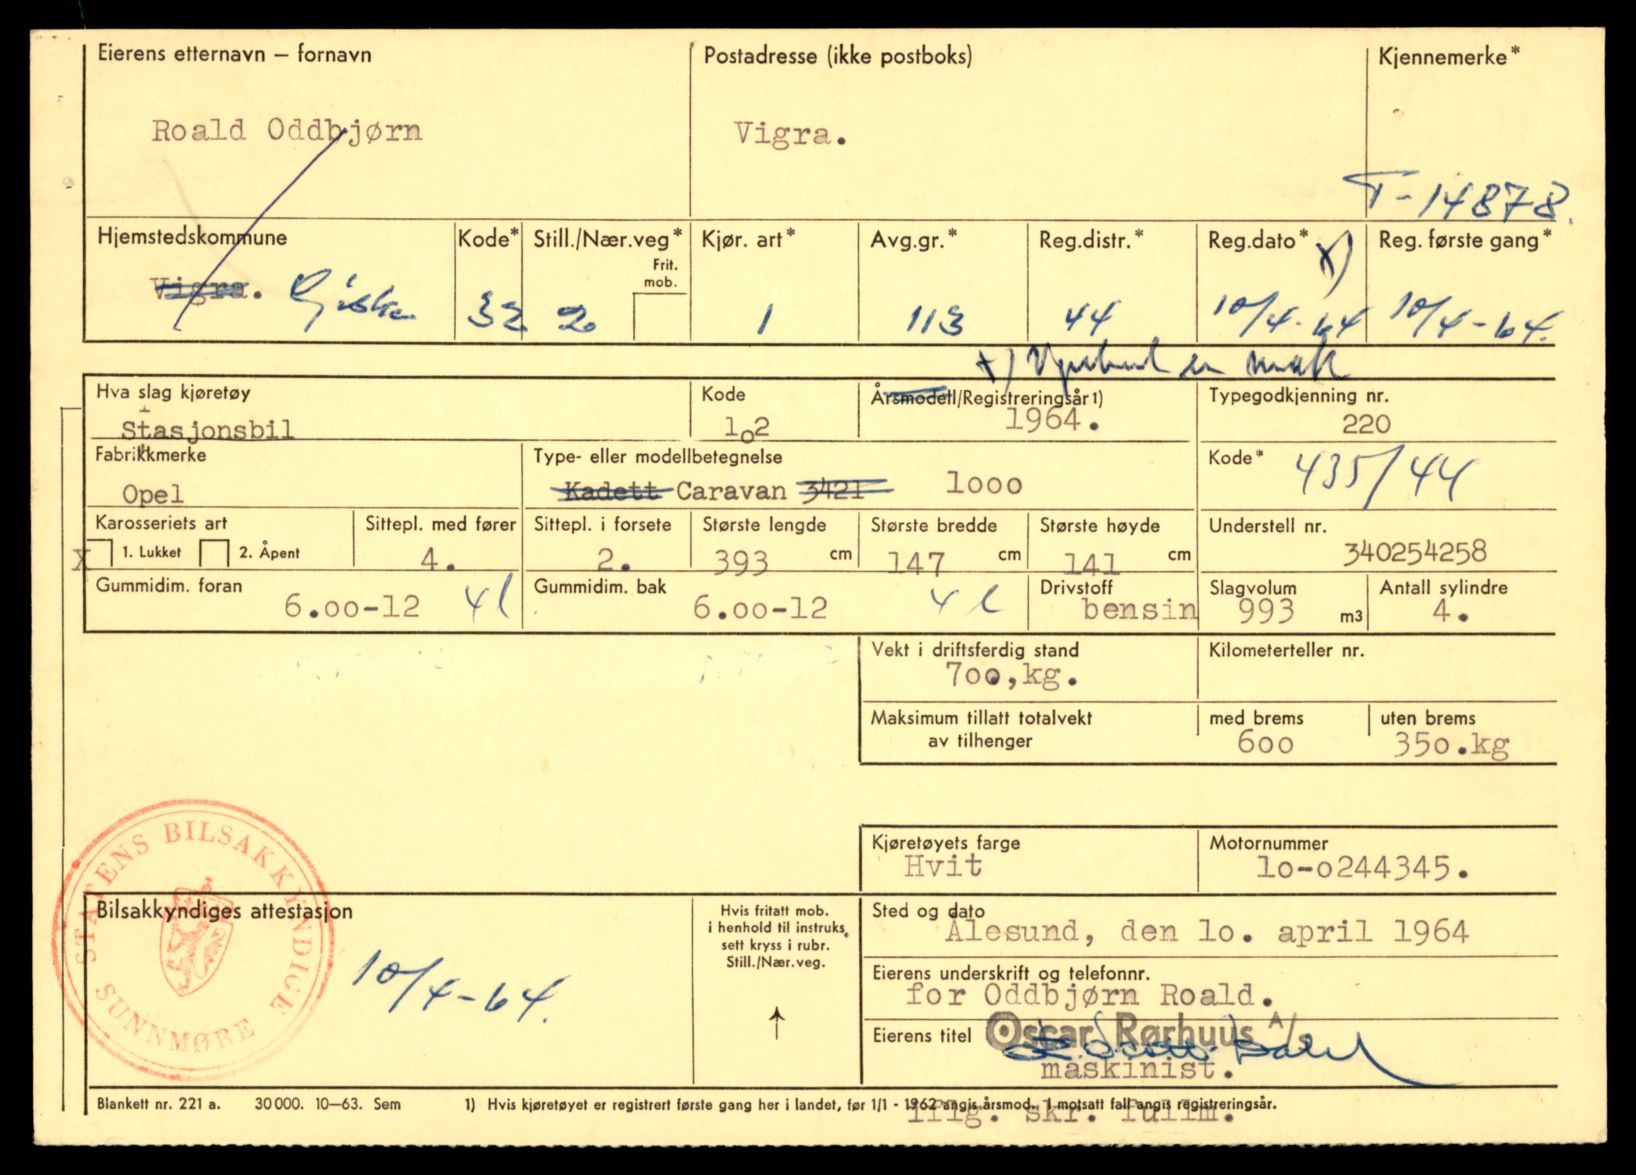 Eierens etternavn — fornavn
Postadresse (ikke postboks)
Kjennemerke*
Roald Oddbjørn
Vigra.
T-14878.
Hjemstedskommune
Kode*
Still./Nær.veg*
Frit. mob.
Kjør. art*
Avg.gr.*
Reg.distr.*
Reg.dato* x)
Reg. første gang*
Vigra. Giske
32
2
1
113
44
10/4-64
10/4-64.
x) en
Hva slag kjøretøy
Kode
Årsmodell/Registreringsår1)
Typegodkjenning nr.
Stasjonsbil
1o2
1964.
220
Fabrikkmerke
Type- eller modellbetegnelse
Kode*
435/44
Opel
Kadett Caravan 3421 1ooo
Karosseriets art
Sittepl. med fører
Sittepl. i forsete
Største lengde
Største bredde
Største høyde
Understell nr.
X 1. Lukket 2. Åpent
4.
2.
393 cm
147 cm
141 cm
340254258
Gummidim. foran
Gummidim. bak
Drivstoff
Slagvolum
Antall sylindre
6.oo-12 4l
6.oo-12 4l
bensin
993 m3
4.
Vekt i driftsferdig stand
Kilometerteller nr.
7oo,kg.
Maksimum tillatt totalvekt
av tilhenger
med brems
uten brems
6oo
35o.kg
Kjøretøyets farge
Motornummer
Hvit
1o-o244345.
STATENS BILSAKKYNDIGE
SUNNMØRE
Bilsakkyndiges attestasjon
10/4-64.
Hvis fritatt mob.
i henhold til instruks,
sett kryss i rubr.
Still./Nær.veg.
Sted og dato
Ålesund, den 1o. april 1964
Eierens underskrift og telefonnr.
for Oddbjørn Roald.
Eierens titel
Oscar Rørhuus A/s
maskinist.
Blankett nr. 221 a. 30000. 10—63. Sem
1) Hvis kjøretøyet er registrert første gang her i landet, før 1/1 - 1962 angis årsmod. I motsatt fall angis registreringsår.
iflg. skr. fullm.